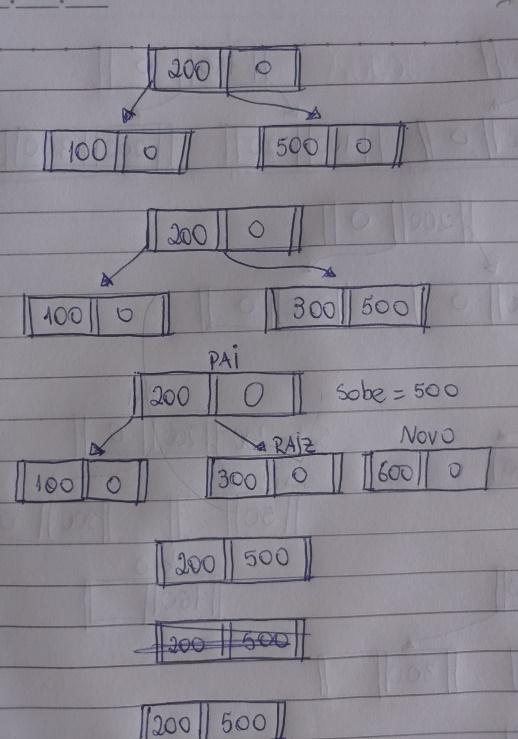 200 0
100 0 500 0
200 0
100 0 300 500
PAI
200 0 Sobe = 500
RAIZ NOVO
100 0 300 0 600 0
200 500
200 500
200 500